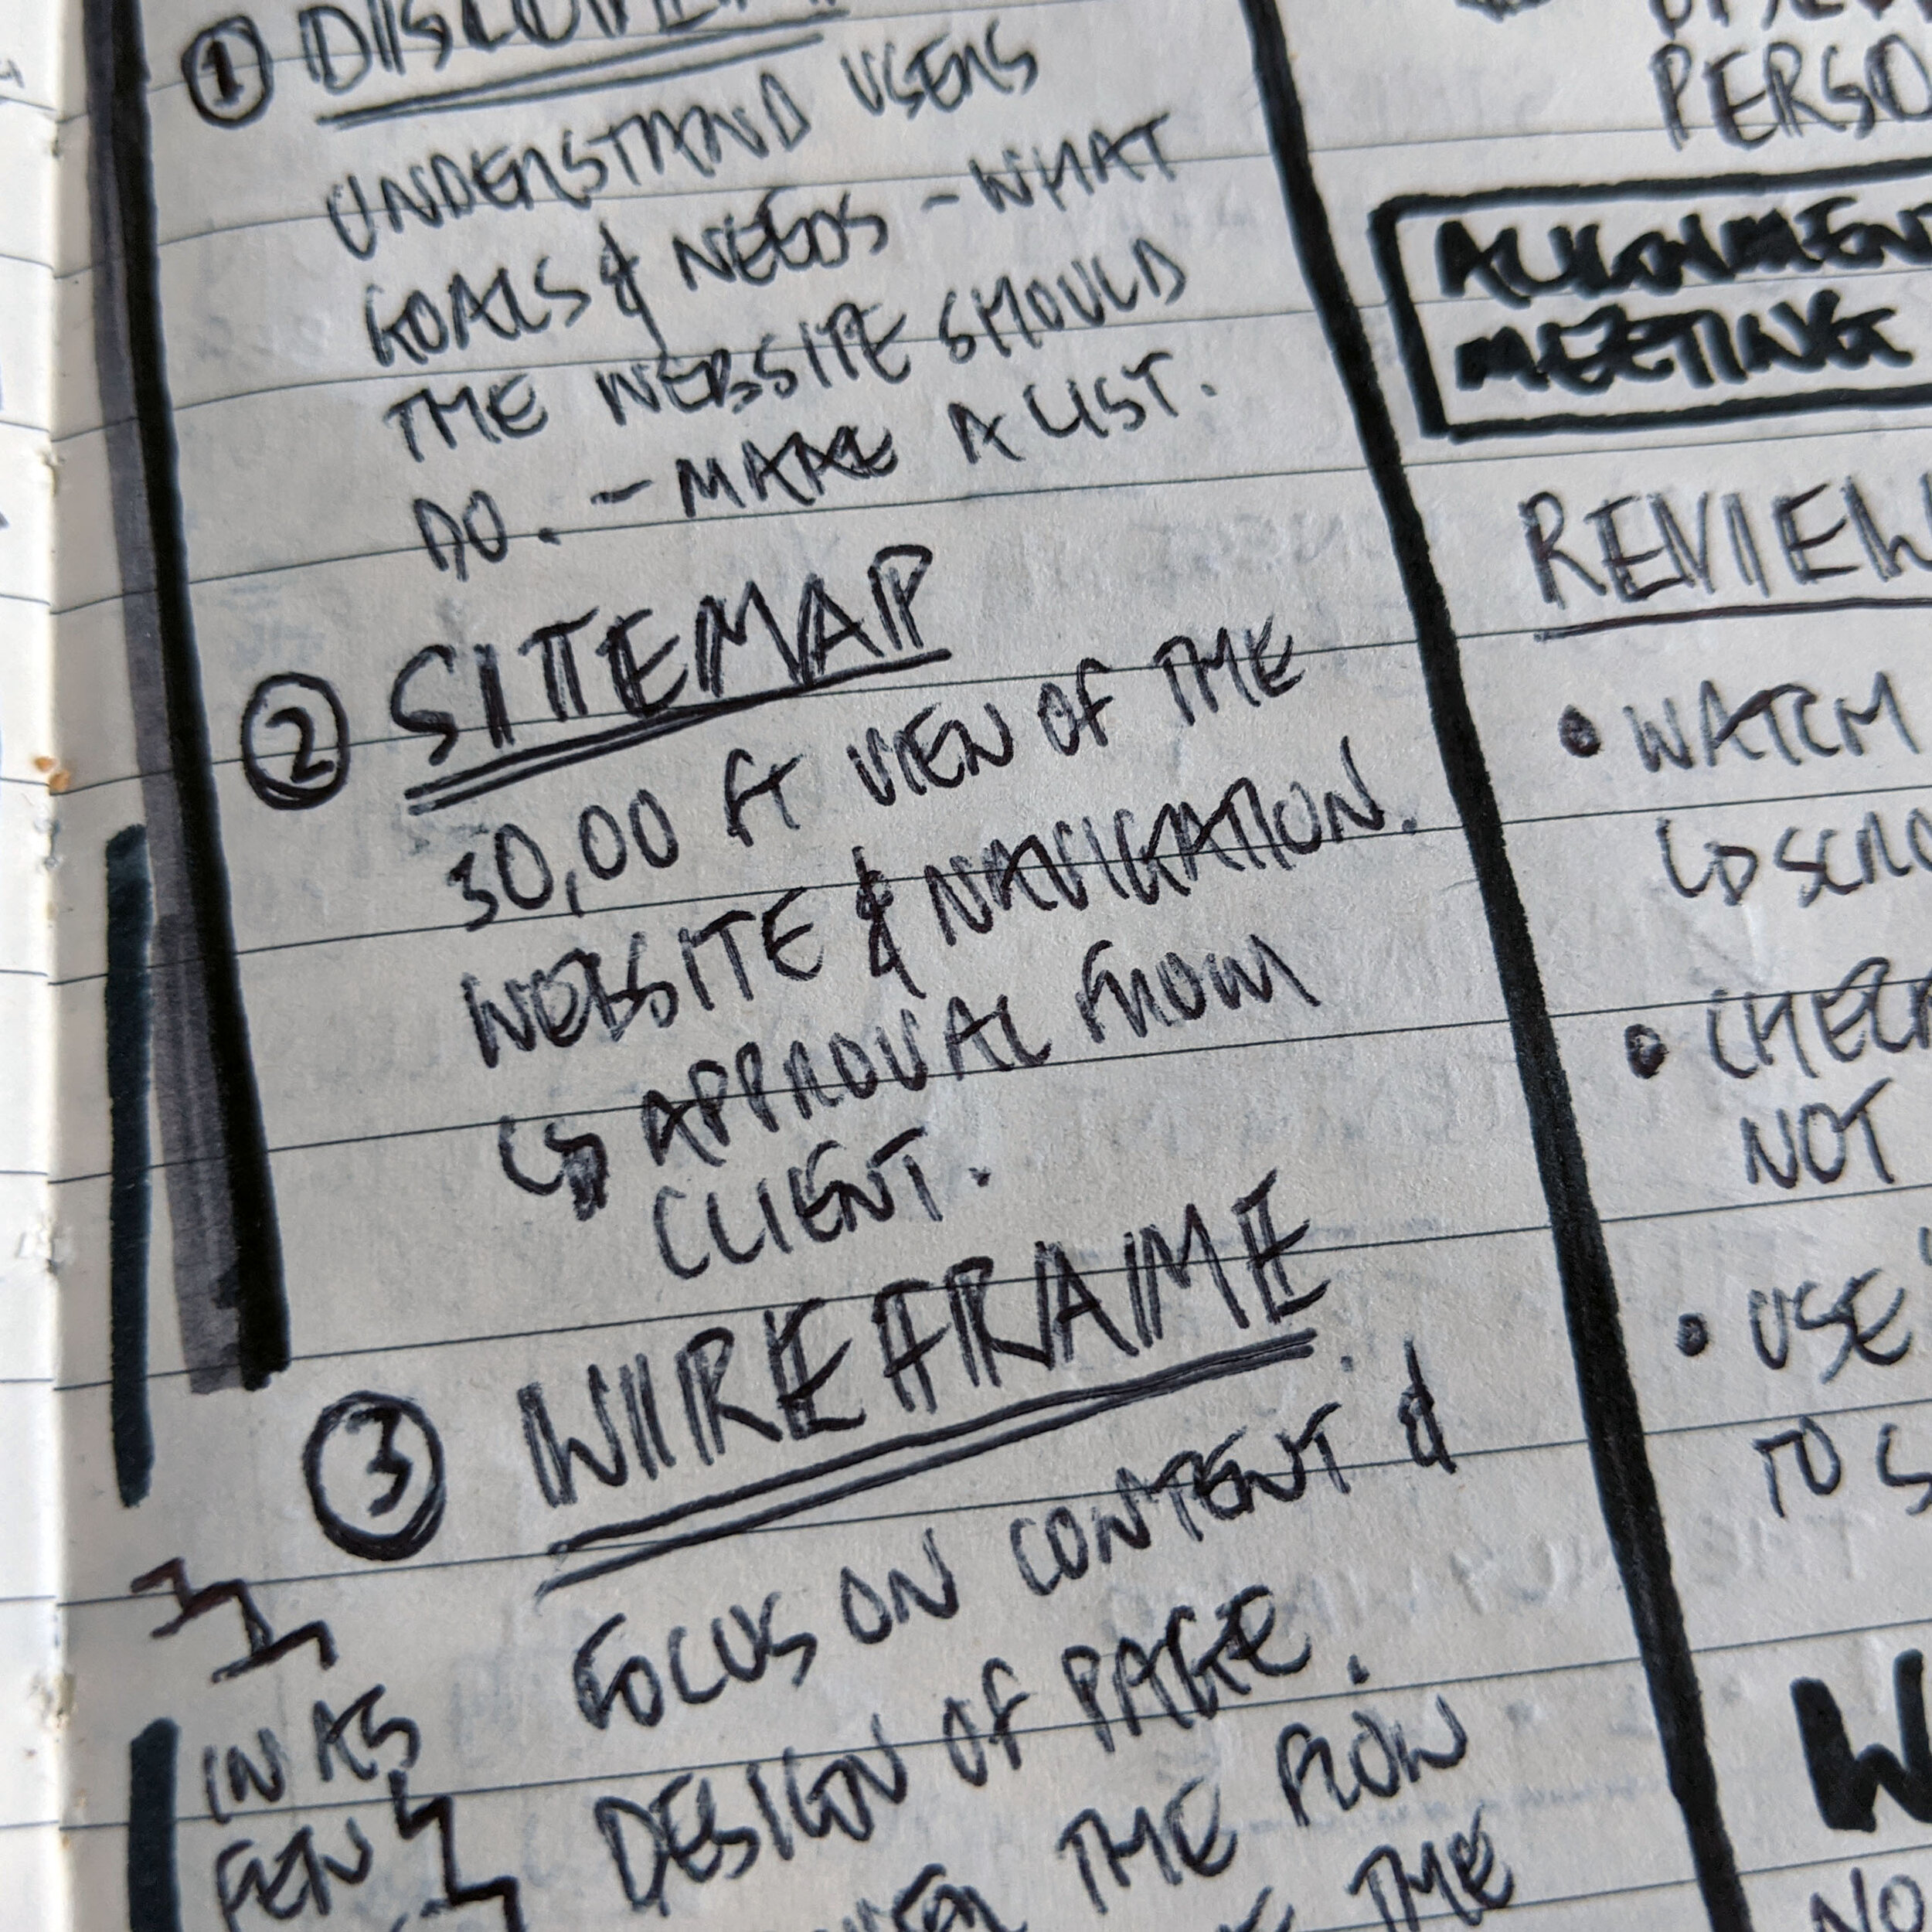 ① DISCOVERY
UNDERSTAND USERS
GOALS & NEEDS - WHAT
THE WEBSITE SHOULD
DO. - MAKE A LIST.
② SITEMAP
30,00 ft VIEW OF THE
WEBSITE & NAVIGATION.
↳ APPROVAL FROM
CLIENT.
③ WIREFRAME
FOCUS ON CONTENT &
DESIGN OF PAGE.
THE FLOW
THE
IN AS
FEW
PERSO
ALIGNMEN
MEETING
REVIEW
• WATCH
↳ SCRO
• CHECK
NOT
• USE
TO S
W
NO